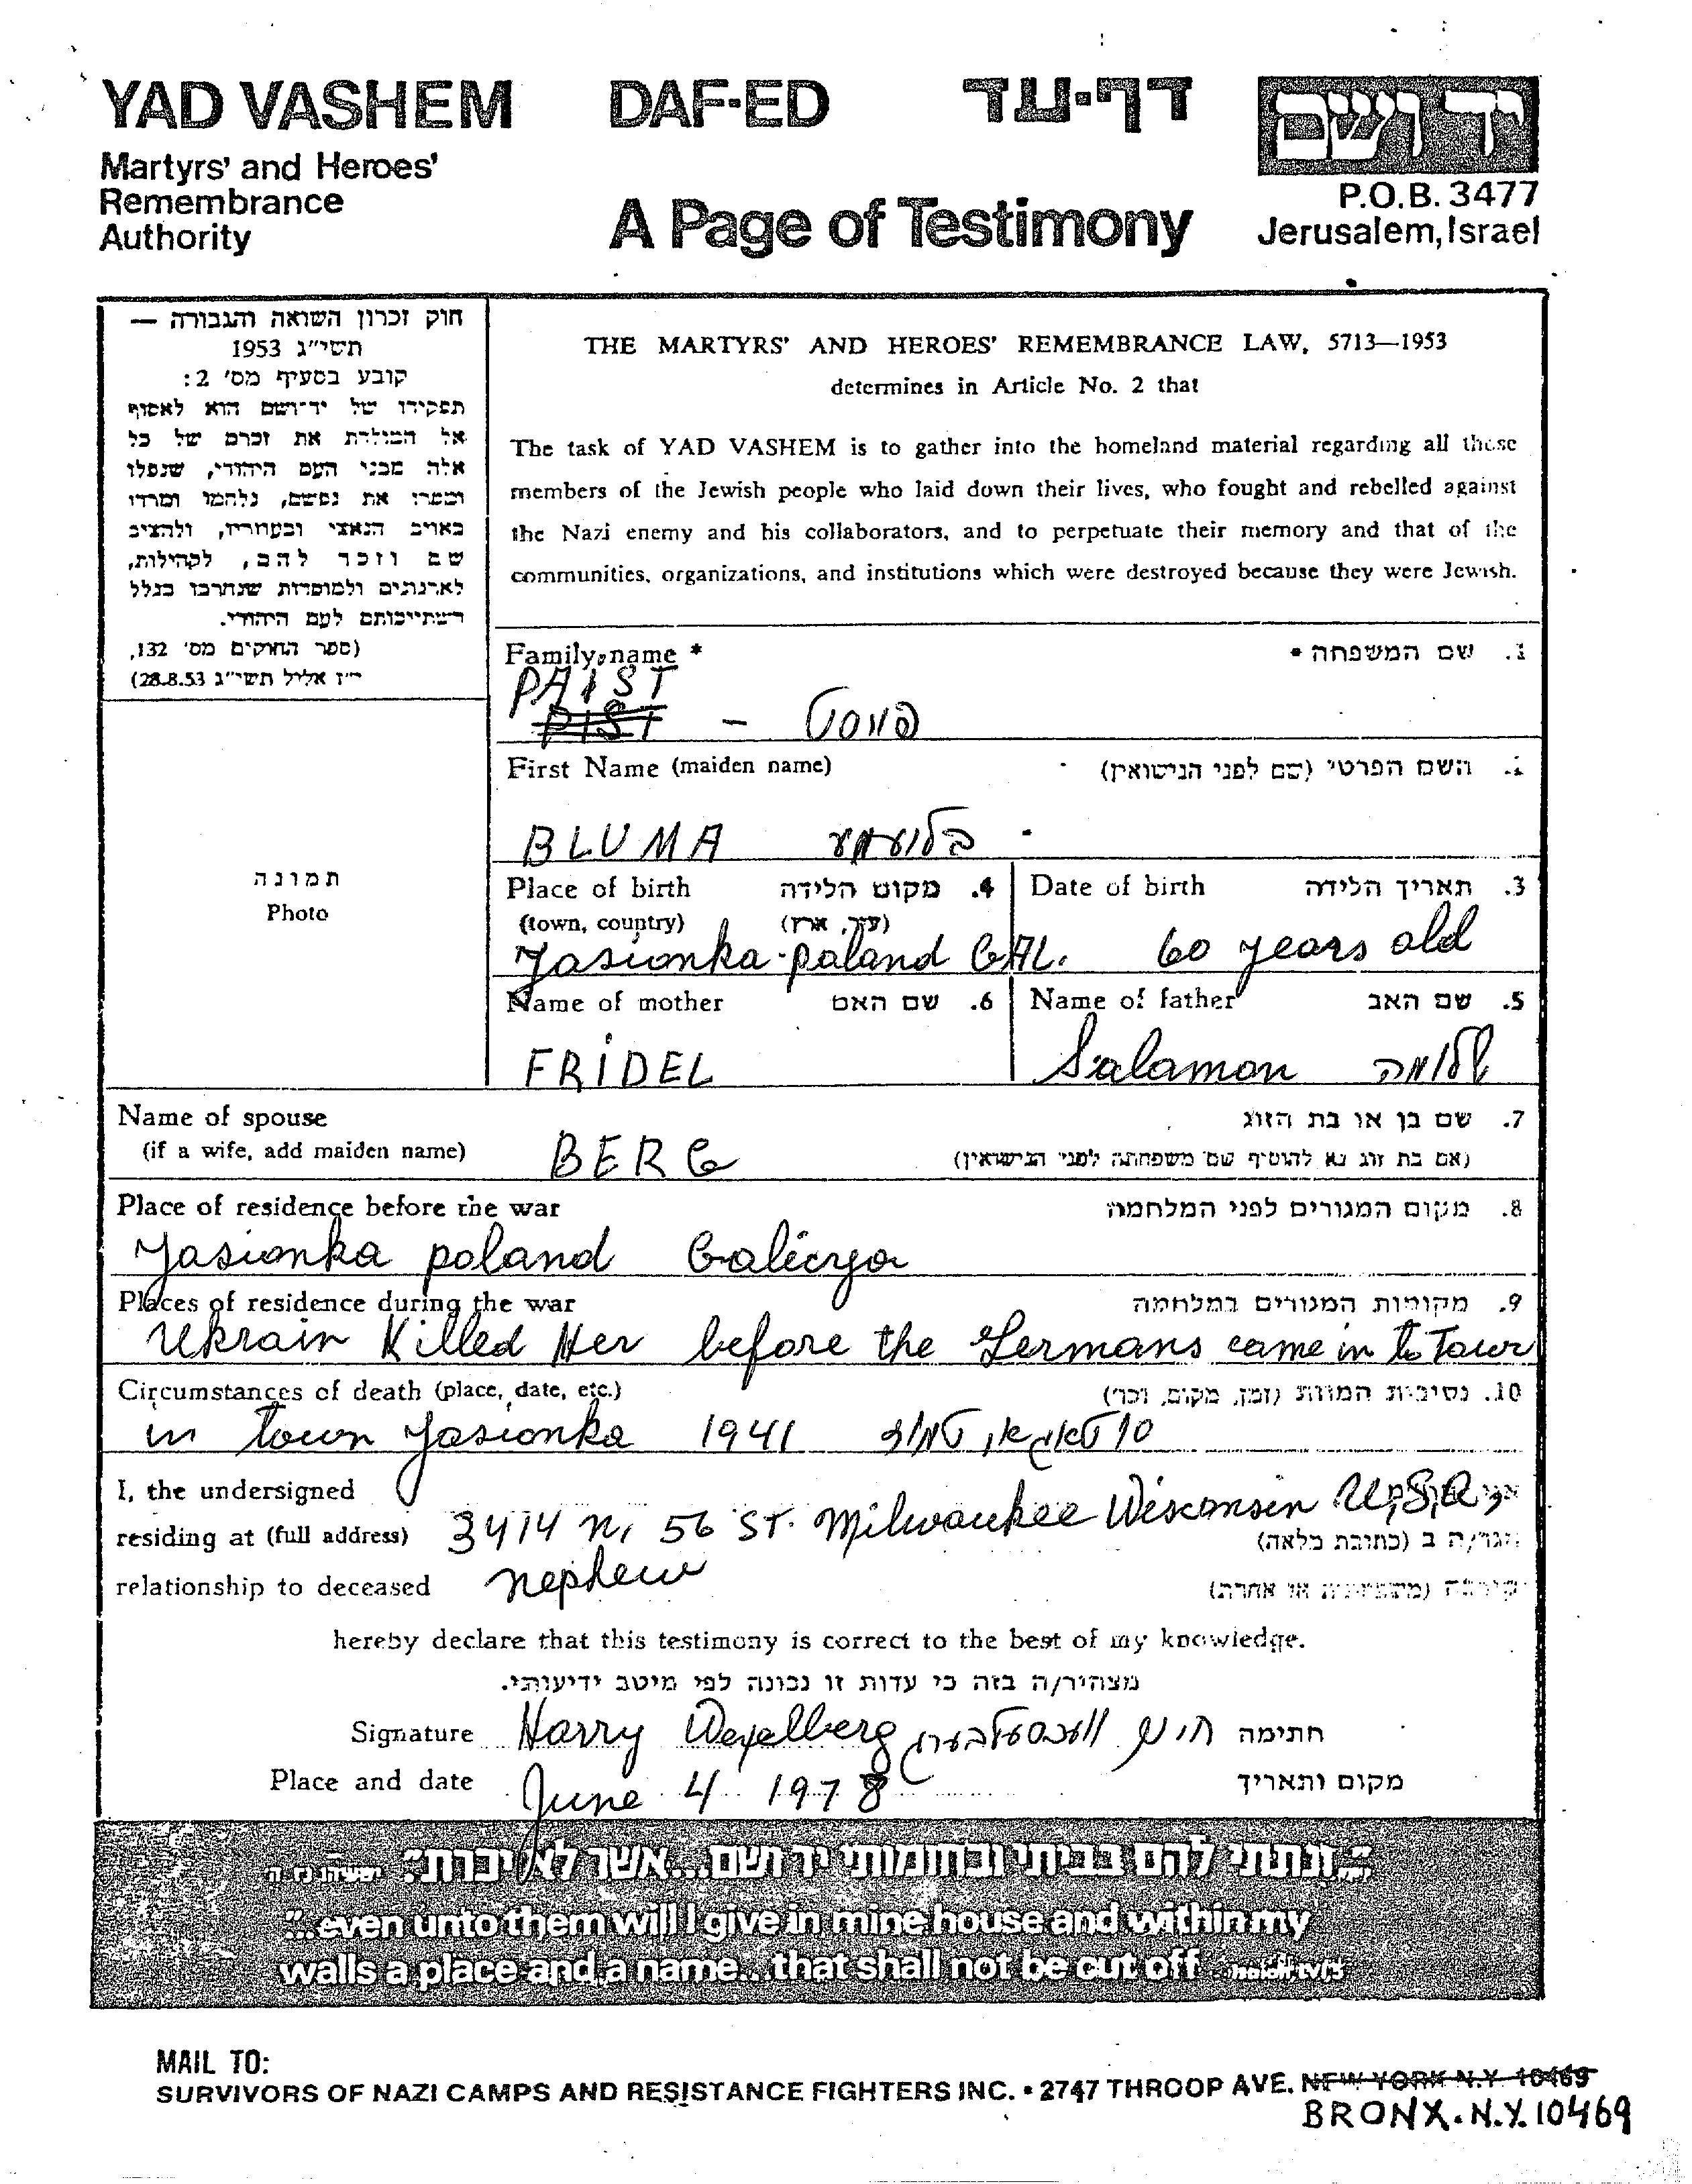 YAD VASHEM DAF-ED דף-עד יד ושם
Martyrs' and Heroes'
Remembrance
Authority
A Page of Testimony
P.O.B. 3477
Jerusalem, Israel
חוק זכרון השואה והגבורה —
תשי"ג 1953
קובע בסעיף מס' 2:
תפקידו של יד-ושם הוא לאסוף
אל המולדת את זכרם של כל
אלה מבני העם היהודי, שנפלו
ומסרו את נפשם, נלחמו ומרדו
באויב הנאצי ובעוזריו, ולהציב
שם וזכר להם, לקהילות,
לארגונים ולמוסדות שנחרבו בגלל
השתייכותם לעם היהודי.
(ספר החוקים מס' 132,
י"ז אלול תשי"ג 28.8.53)
תמונה
Photo
THE MARTYRS' AND HEROES' REMEMBRANCE LAW, 5713—1953
determines in Article No. 2 that
The task of YAD VASHEM is to gather into the homeland material regarding all those
members of the Jewish people who laid down their lives, who fought and rebelled against
the Nazi enemy and his collaborators, and to perpetuate their memory and that of the
communities, organizations, and institutions which were destroyed because they were Jewish.
Family name * 1. שם המשפחה *
PAIST
PIST - פייסט
First Name (maiden name) 2. השם הפרטי (שם לפני הנישואין)
BLUMA בלומע
Place of birth 4. מקום הלידה
(town, country) (עיר, ארץ)
Jasionka-poland GAL.
Date of birth 3. תאריך הלידה
60 years old
Name of mother 6. שם האם
FRIDEL
Name of father 5. שם האב
Salamon שלומה
Name of spouse 7. שם בן או בת הזוג
(if a wife, add maiden name) (אם בת זוג נא להוסיף שם משפחתה לפני הנישואין)
BERG
Place of residence before the war 8. מקום המגורים לפני המלחמה
Jasionka poland Galicya
Places of residence during the war 9. מקומות המגורים במלחמה
Ukrain Killed Her before the Germans came in to Town
Circumstances of death (place, date, etc.) 10. נסיבות המוות (זמן, מקום, וכו')
in town Jasionka 1941
I, the undersigned
residing at (full address) 3414 N. 56 ST. Milwaukee Wisconsin U.S.A. הגר/ה ב (כתובת מלאה)
relationship to deceased nephew קירבה (משפחתית או אחרת)
hereby declare that this testimony is correct to the best of my knowledge.
מצהיר/ה בזה כי עדות זו נכונה לפי מיטב ידיעותי.
Signature Harry Wexelberg חיים וועכסעלבערג חתימה
Place and date June 4 1978 מקום ותאריך
"...ונתתי להם בביתי ובחומותי יד ושם...אשר לא יכרת" ישעיהו נו ה
"...even unto them will I give in mine house and within my
walls a place and a name...that shall not be cut off
MAIL TO:
SURVIVORS OF NAZI CAMPS AND RESISTANCE FIGHTERS INC. • 2747 THROOP AVE. NEW YORK N.Y. 10469
BRONX. N.Y. 10469